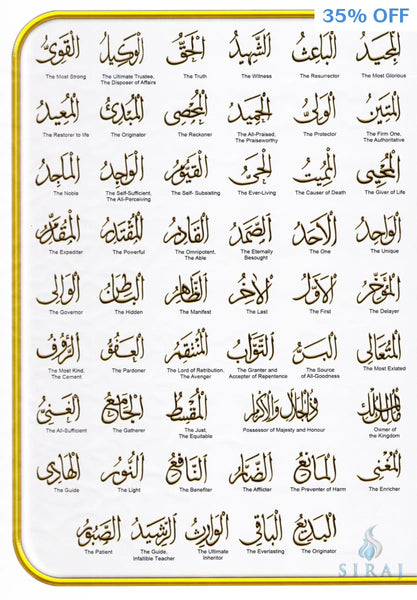 35% OFF
المجيد الباعث الشهيد الحق الوكيل القوي
The Most Strong The Ultimate Trustee, The Truth The Witness The Resurrector The Most Glorious
The Disposer of Affairs
المتين الولي الحميد المحصي المبدئ المعيد
The Restorer to life The Originator The Reckoner The All-Praised, The Protector The Firm One,
The Praiseworthy The Authoritative
المحيي المميت الحي القيوم الواجد الماجد
The Noble The Self-Sufficient, The Self- Subsisting The Ever-Living The Causer of Death The Giver of Life
The All-Perceiving
الواحد الأحد الصمد القادر المقتدر المقدم
The Expediter The Powerful The Omnipotent, The Eternally The One The Unique
The Able Besought
المؤخر الأول الآخر الظاهر الباطن الوالي
The Governor The Hidden The Manifest The Last The First The Delayer
المتعالي البر التواب المنتقم العفو الرؤوف
The Most Kind, The Pardoner The Lord of Retribution, The Granter and The Source The Most Exlated
The Cement The Avenger Accepter of Repentence of All-Goodness
مالك الملك ذو الجلال والإكرام المقسط الجامع الغني
The All-Sufficient The Gatherer The Just, Possessor of Majesty and Honour Owner of
The Equitable the Kingdom
المغني المانع الضار النافع النور الهادي
The Guide The Light The Benefiter The Afflicter The Preventer of Harm The Enricher
البديع الباقي الوارث الرشيد الصبور
The Patient The Guide, The Ultimate The Everlasting The Originator
Infallible Teacher Inheritor
SIRAJ